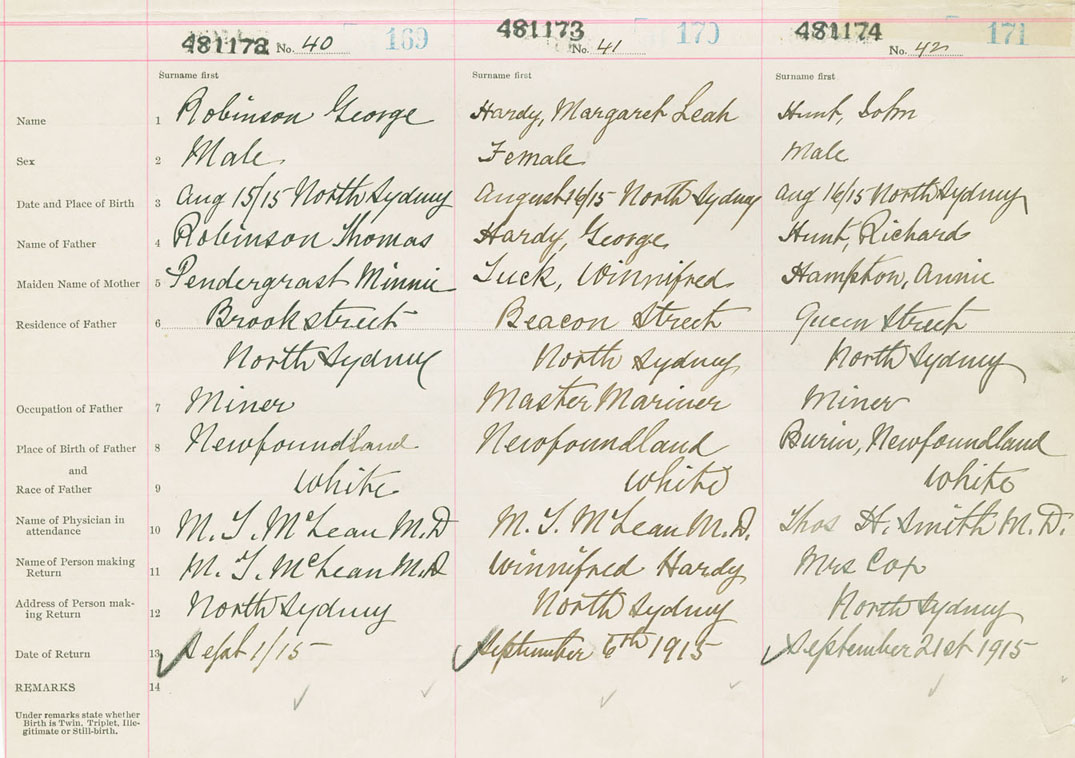 481172 No. 40 169 481173 No. 41 170 481174 No. 42 171
Surname first Surname first Surname first
Name 1 Robinson George Hardy, Margaret Leah Hunt, John
Sex 2 Male Female Male
Date and Place of Birth 3 Aug 15/15 North Sydney August 16/15 North Sydney Aug 16/15 North Sydney
Name of Father 4 Robinson Thomas Hardy, George Hunt, Richard
Maiden Name of Mother 5 Pendergrast Minnie Tuck, Winnifred Hampton, Annie
Residence of Father 6 Brook street Beacon Street Queen Street
North Sydney North Sydney North Sydney
Occupation of Father 7 Miner Master Mariner Miner
Place of Birth of Father 8 Newfoundland Newfoundland Burin, Newfoundland
and
Race of Father 9 White White White
Name of Physician in attendance 10 M. T. McLean M.D M. T. McLean M.D. Thos H. Smith M.D.
Name of Person making Return 11 M. T. McLean M.D Winnifred Hardy Mrs Cop
Address of Person mak-ing Return 12 North Sydney North Sydney North Sydney
Date of Return 13 Sept 1/15 September 6th 1915 September 21st 1915
REMARKS 14
Under remarks state whether
Birth is Twin, Triplet, Ille-
gitimate or Still-birth.